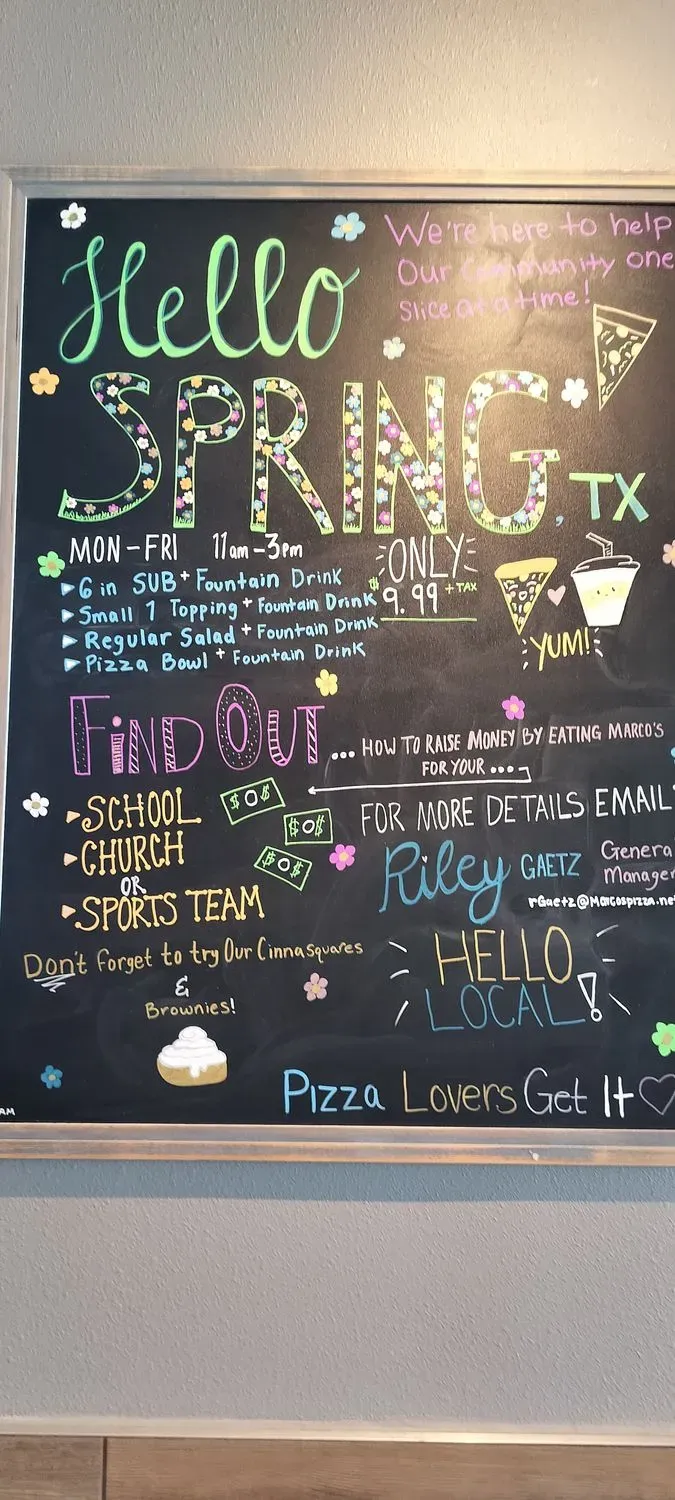 Hello
We're here to help
Our Community one
slice at a time!
SPRING, TX
MON-FRI 11am-3pm
ONLY
$9.99 +TAX
▸6 in SUB + Fountain Drink
▸Small 1 Topping + Fountain Drink
▸Regular Salad + Fountain Drink
▸Pizza Bowl + Fountain Drink
YUM!
FIND OUT
... HOW TO RAISE MONEY BY EATING MARCO'S
FOR YOUR ...
▸SCHOOL
▸CHURCH
OR
▸SPORTS TEAM
$ O $
$ O $
$ O $
FOR MORE DETAILS EMAIL
Riley GAETZ
Genera
Manager
rGaetz@Marcospizza.net
Don't forget to try Our Cinnasquares
&
Brownies!
HELLO
LOCAL!
Pizza Lovers Get It
AM